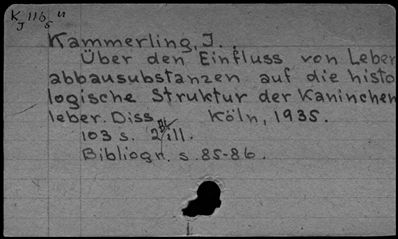 K 116 u
J 5
Kammerling, J. .
Über den Einfluss von Leber
abbausubstanzen auf die histo
logische Struktur der Kaninchen
leber. Diss. Köln, 1935.
103 s. 2 ill.
Bibliogr. s. 85-86.